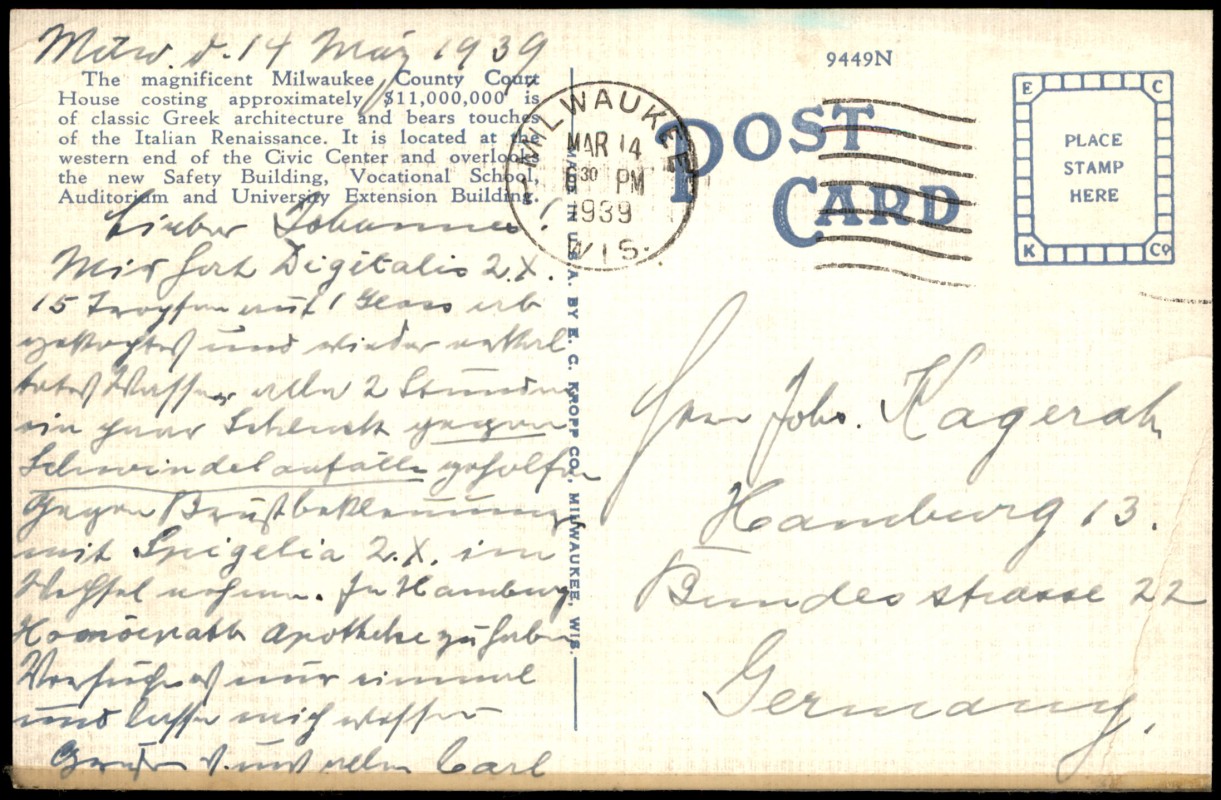 Milw. d. 14 März 1939
The magnificent Milwaukee County Court
House costing approximately $11,000,000 is
of classic Greek architecture and bears touches
of the Italian Renaissance. It is located at the
western end of the Civic Center and overlooks
the new Safety Building, Vocational School,
Auditorium and University Extension Building.
Lieber Johannes!
Mir hat Digitalis 2.X.
15 Tropfen auf 1 Glass ab
gekochtes und wieder erkal
tetes Wasser, alle 2 Stunden
ein paar Schluck gegen
Schwindelanfälle geholfen
Gegen Brustbeklemmung
mit Spigelia 2.X. im
Wechsel nehmen. In Hamburg
Homöopath Apotheke zu haben
Versuch es nur einmal
und lasse mich wissen
Gruß an alle Carl
MILWAUKEE
MAR 14
6 30 PM
1939
WIS.
MADE IN U.S.A. BY E. C. KROPP CO., MILWAUKEE, WIS.
9449N
POST
CARD
E C
PLACE
STAMP
HERE
K Co
Herrn Johs. Kagerah
Hamburg 13.
Bundesstrasse 22
Germany.